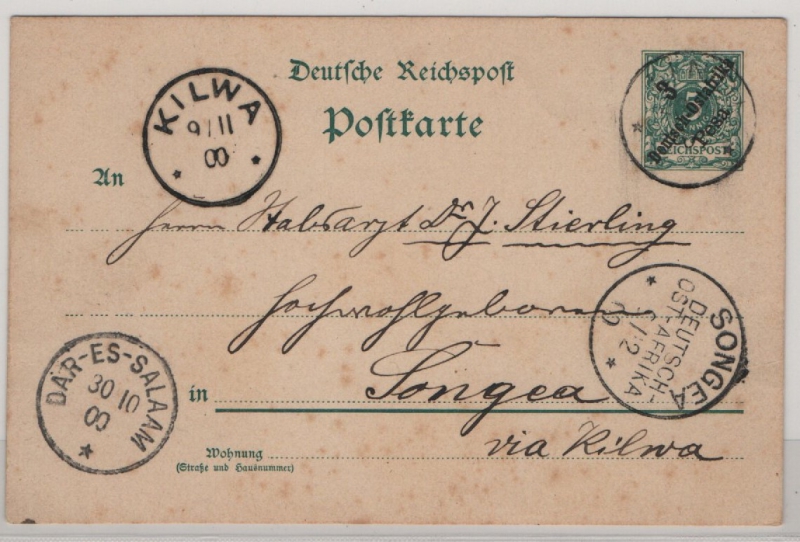 Deutsche Reichspost
Postkarte
KILWA
9/11
00
3
5
Deutsch-Ostafrika
Pesa
REICHSPOST
An
Herrn Stabsarzt Dr. J. Stierling
Hochwohlgeboren
SONGEA
DEUTSCH-
OST-AFRIKA
/12
00
DAR-ES-SALAAM
30 10
00
in
Songea
via Kilwa
Wohnung
(Straße und Hausnummer)